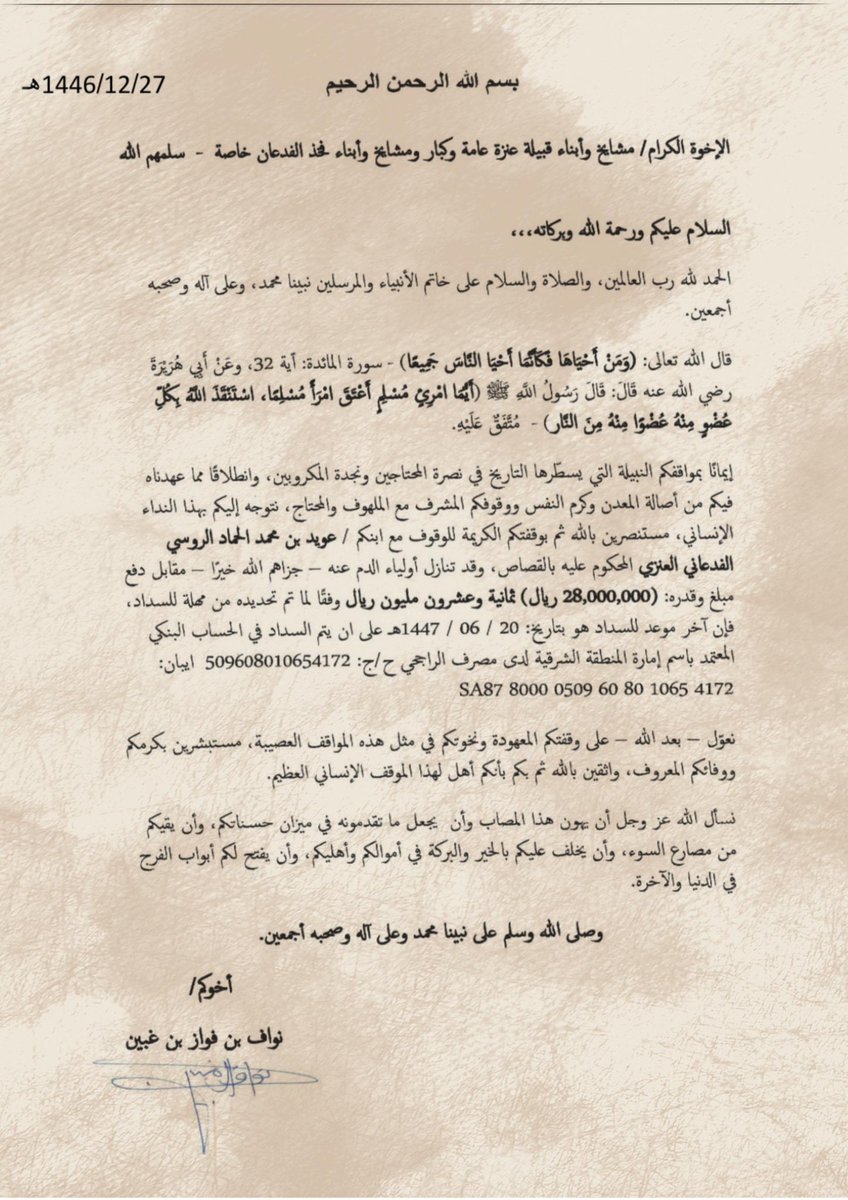 1446/12/27هـ
بسم الله الرحمن الرحيم
الإخوة الكرام/ مشايخ وأبناء قبيلة عنزة عامة وكبار ومشايخ وأبناء فخذ الفدعان خاصة - سلمهم الله
السلام عليكم ورحمة الله وبركاته،،،
الحمد لله رب العالمين، والصلاة والسلام على خاتم الأنبياء والمرسلين نبينا محمد، وعلى آله وصحبه
أجمعين.
قال الله تعالى: (وَمَنْ أَحْيَاهَا فَكَأَنَّمَا أَحْيَا النَّاسَ جَمِيعًا) - سورة المائدة: آية 32، وعَنْ أَبِي هُرَيْرَةَ
رضي الله عنه قَالَ: قَالَ رَسُولُ اللَّهِ ﷺ (أَيُّمَا امْرِئٍ مُسْلِمٍ أَعْتَقَ امْرَأً مُسْلِمًا، اسْتَنْقَذَ اللَّهُ بِكُلِّ
عُضْوٍ مِنْهُ عُضْوًا مِنْهُ مِنَ النَّارِ) - مُتَّفَقٌ عَلَيْهِ.
إيمانًا بمواقفكم النبيلة التي يسطّرها التاريخ في نصرة المحتاجين ونجدة المكروبين، وانطلاقًا مما عهدناه
فيكم من أصالة المعدن وكرم النفس ووقوفكم المشرف مع الملهوف والمحتاج، نتوجه إليكم بهذا النداء
الإنساني، مستنصرين بالله ثم بوقفتكم الكريمة للوقوف مع ابنكم / عويد بن محمد الحماد الروسي
الفدعاني العنزي المحكوم عليه بالقصاص، وقد تنازل أولياء الدم عنه – جزاهم الله خيرًا – مقابل دفع
مبلغ وقدره: (28,000,000 ريال) ثمانية وعشرون مليون ريال وفقًا لما تم تحديده من مهلة للسداد،
فإن آخر موعد للسداد هو بتاريخ: 20 / 06 / 1447هـ على ان يتم السداد في الحساب البنكي
المعتمد باسم إمارة المنطقة الشرقية لدى مصرف الراجحي ح/ج: 509608010654172 ايبان:
SA87 8000 0509 60 80 1065 4172
نعوّل – بعد الله – على وقفتكم المعهودة ونخوتكم في مثل هذه المواقف العصيبة، مستبشرين بكرمكم
ووفائكم المعروف، واثقين بالله ثم بكم بأنكم أهل لهذا الموقف الإنساني العظيم.
نسأل الله عز وجل أن يهون هذا المصاب وأن يجعل ما تقدمونه في ميزان حسناتكم، وأن يقيكم
من مصارع السوء، وأن يخلف عليكم بالخير والبركة في أموالكم وأهليكم، وأن يفتح لكم أبواب الفرج
في الدنيا والآخرة.
وصلى الله وسلم على نبينا محمد وعلى آله وصحبه أجمعين.
أخوكم/
نواف بن فواز بن غبين